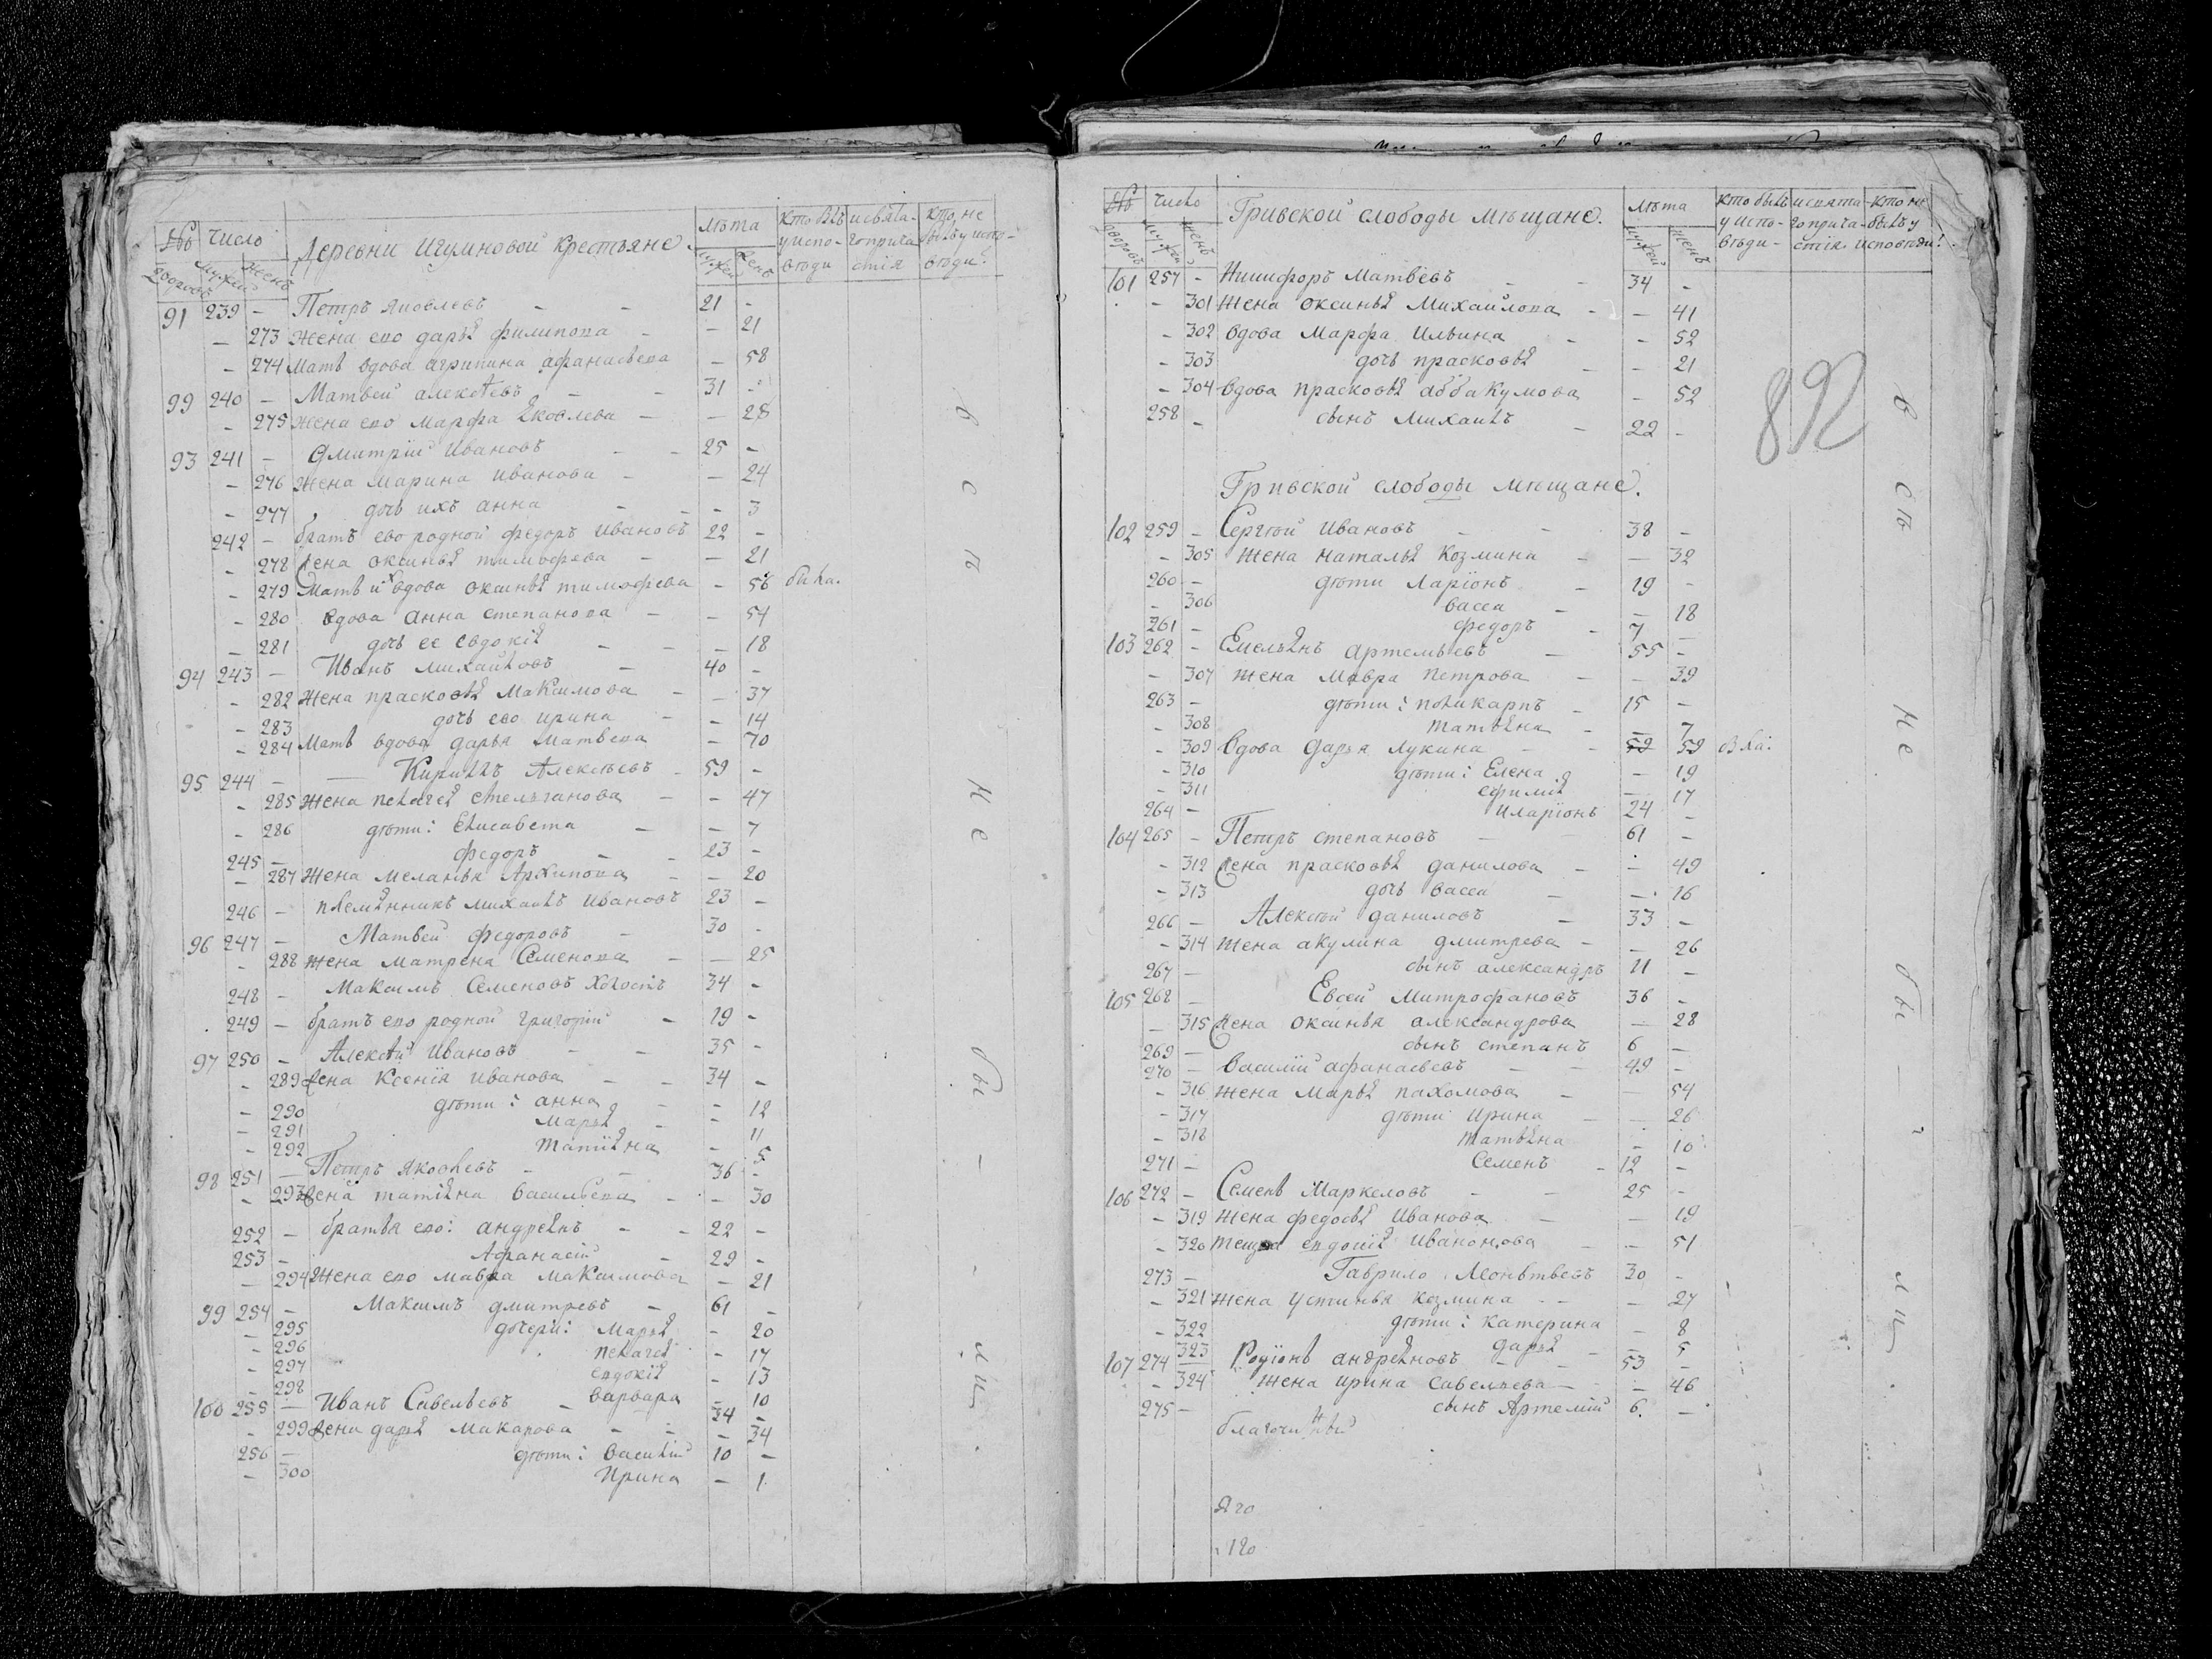 № Число Деревни Игумновой крестьяне. Лѣта Кто былъ у испо- и свята- Кто не
дворовъ мужей женъ мужей женъ вѣди го прича стія былъ у испо- вѣди?
91 239 — Петръ Яковлевъ — — 21 —
— 273 Жена ево дарья филипова — — 21
— 274 Мать вдова агрипина афанасьева — 58
99 240 — Матвей алексѣевъ — — 31 —
— 275 жена ево Марфа Яковлева — — 28
93 241 — Дмитрій Ивановъ — — 25 —
— 276 Жена Марина иванова — — 24
— 277 дочь ихъ анна — — — 3
242 — братъ ево родной федоръ ивановъ 22 —
— 278 жена оксинья тимофева — — 21
— 279 Мать их вдова оксинья тимофева — 56 была.
— 280 вдова анна степанова — — 54
— 281 дочь ее евдокія — — — 18
94 243 — Иванъ михайловъ — 40 —
— 282 жена прасковья Максимова — — 37
— 283 дочь ево ирина — — 14
— 284 Мать вдова дарья Матвева — 70
95 244 — — Кирилъ Алексѣевъ — 59 —
— 285 жена пелагея емельганова — — 47
— 286 дѣти: Елисавета — — 7
245 — федоръ — — 23 —
— 287 жена меланья Архипова — — 20
246 — племянникъ михаилъ ивановъ 23 —
96 247 — Матвей федоровъ — 30 —
— 288 жена матрена Семенова — — 25
248 — Максимъ Семеновъ холостъ 34 —
249 — братъ ево родной григорій — 19 —
97 250 — Алексѣй Ивановъ — — 35 —
— 289 жена Ксенія иванова — — 34 —
— 290 дѣти: анна — — 12
— 291 Марья — — 11
— 292 татіяна — 5
98 251 — Петръ Яковлевъ — — 36 —
— 293 жена татіяна васильева — — 30
252 — братья ево: андреянъ — — 22 —
253 — Афанасій — 29 —
— 294 Жена ево мавра максимова — 21
99 254 — Максимъ дмитревъ — 61 —
— 295 дочери: Марья — 20
— 296 пелагея — 17
— 297 евдокія — 13
— 298 варвара — 10
100 255 — Иванъ Савельевъ — 34 —
— 299 жена дарья Макарова — — — 34
256 — дѣти: василій 10 —
— 300 Ирина — 1.
всѣ не бы — ли
№ Число Гривской слободы мѣщане. Лѣта Кто былъ у испо- и свята- Кто не
дворовъ мужей женъ мужей женъ вѣди — го прича- стія былъ у исповѣди?
101 257 — Никифоръ Матвѣевъ — — 34 —
— 301 жена оксинья Михайлова — — 41
— 302 вдова Марфа Ильина — — 52
— 303 дочь прасковья — — 21
— 304 вдова прасковья аббакумова — 52
258 — сынъ Михаилъ — 22 —
892
Гривской слободы мѣщане.
102 259 — Сергѣй Ивановъ — — 38 —
— 305 жена наталья козмина — — 32
260 — дѣти Ларіонъ — 19 —
— 306 васса — — 18
261 — федоръ — 7 —
103 262 — Емельянъ артемьевъ — 55 —
— 307 жена Мавра петрова — — 39
263 — дѣти: поликарпъ — 15 —
— 308 татьяна — — 7
— 309 вдова дарья лукина — — 59 59 была:
— 310 дѣти: Елена — 19
— 311 ефимія — 17
264 — иларіонъ 24 —
104 265 — Петръ степановъ — 61 —
— 312 жена прасковья данилова — — 49
— 313 дочь васса — — 16
266 — Алексѣй даниловъ — 33 —
— 314 жена акулина дмитрева — — 26
267 — сынъ александръ 11 —
105 268 — Евсей Митрофановъ 36 —
— 315 жена оксинья александрова — 28
269 — сынъ степанъ 6 —
270 — василій афанасьевъ — — 49 —
— 316 жена Марья пахомова — — 54
— 317 дѣти ирина — — 26
— 318 татьяна — 10
271 — Семенъ — 12 —
106 272 — Семенъ Маркеловъ — — 25 —
— 319 жена федосья Иванова — — 19
— 320 теща евдокія Ивановова — — 51
273 — Гаврило Леонтьевъ 30 —
— 321 жена устинья козмина — — — 27
— 322 дѣти: катерина — 8
323 дарья — — 5
107 274 — Родіонъ андреяновъ — — 53 —
— 324 жена ирина савельева — — 46
275 — сынъ Артемій 6. —
благочинный
всѣ не бы — ли